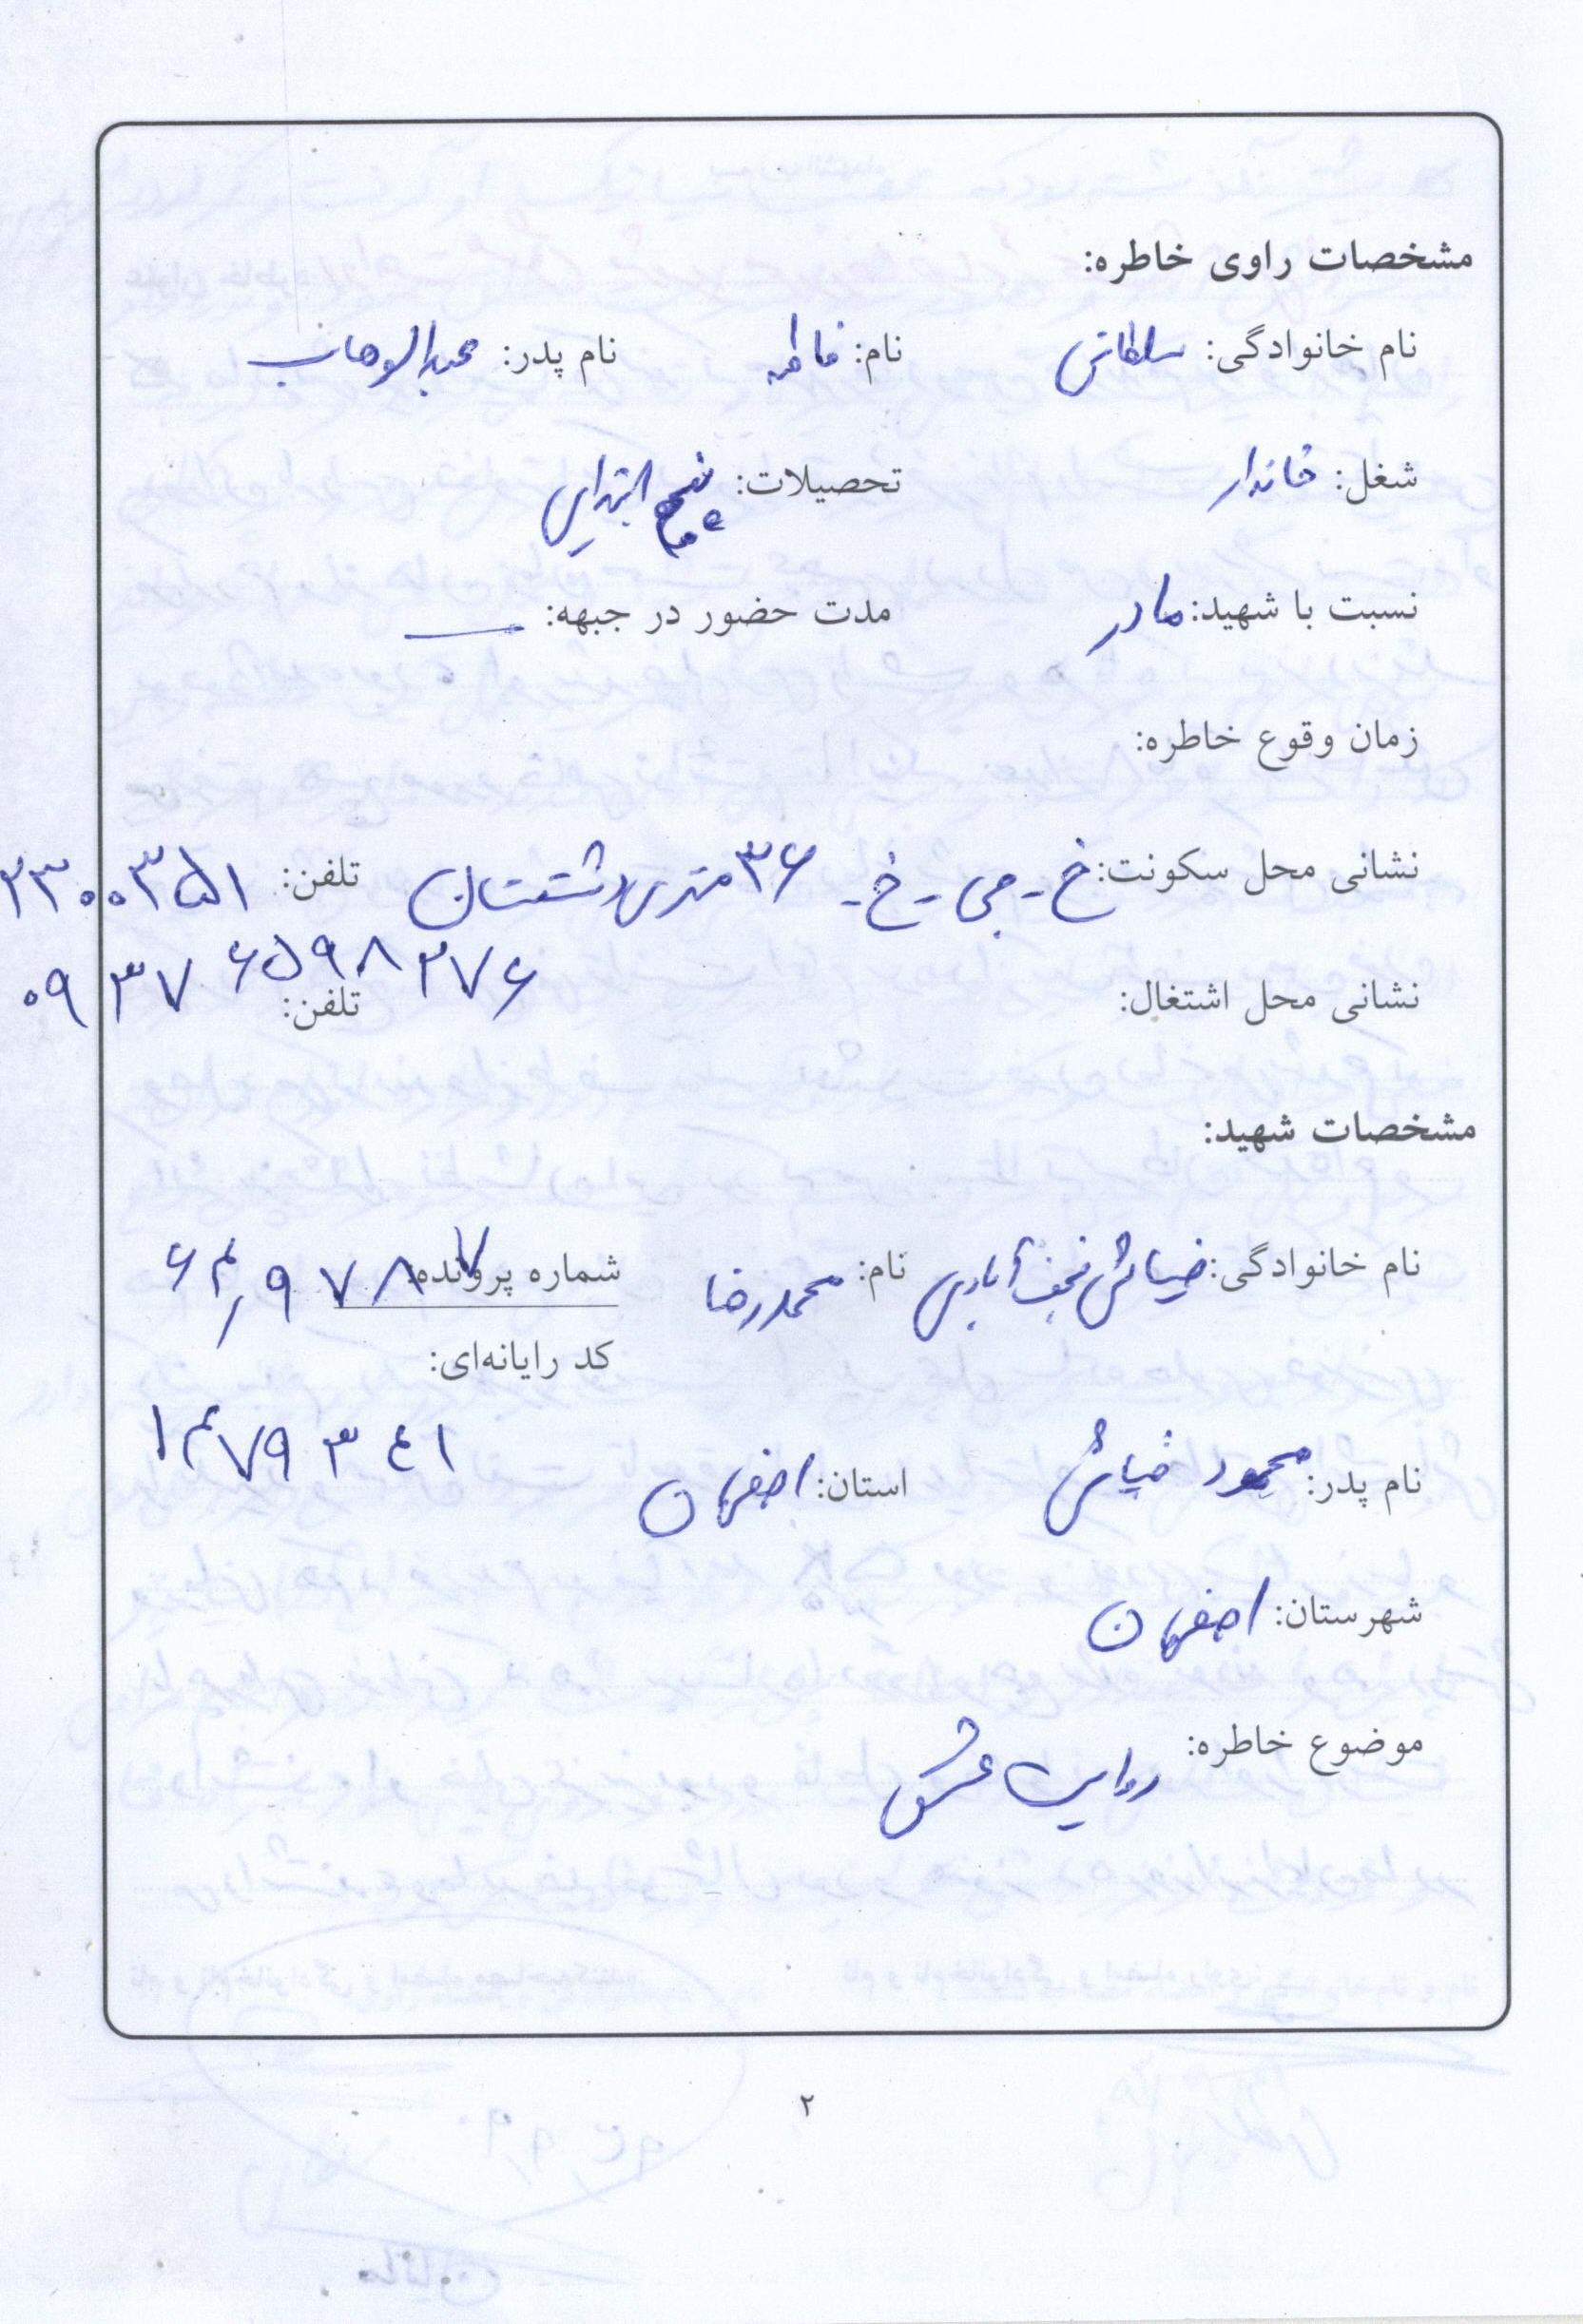 مشخصات راوی خاطره:
نام خانوادگی: سلطانی نام: فاطمه نام پدر: عبدالوهاب
شغل: خاندار تحصیلات: پنجم ابتدایی
نسبت با شهید: مادر مدت حضور در جبهه: ــــ
زمان وقوع خاطره:
نشانی محل سکونت: خ - جی - خ - ۳۶ متری دشتستان تلفن: ۲۳۰۰۳۵۱
نشانی محل اشتغال: تلفن: ۰۹۳۷۶۵۹۸۲۷۶
مشخصات شهید:
نام خانوادگی: ضیائی نجف‌آبادی نام: محمدرضا شماره پرونده:
کد رایانه‌ای:
نام پدر: محمود ضیائی استان: اصفهان ۱۴۷۹۳۴۱
شهرستان: اصفهان
موضوع خاطره: روایت عشق
۲